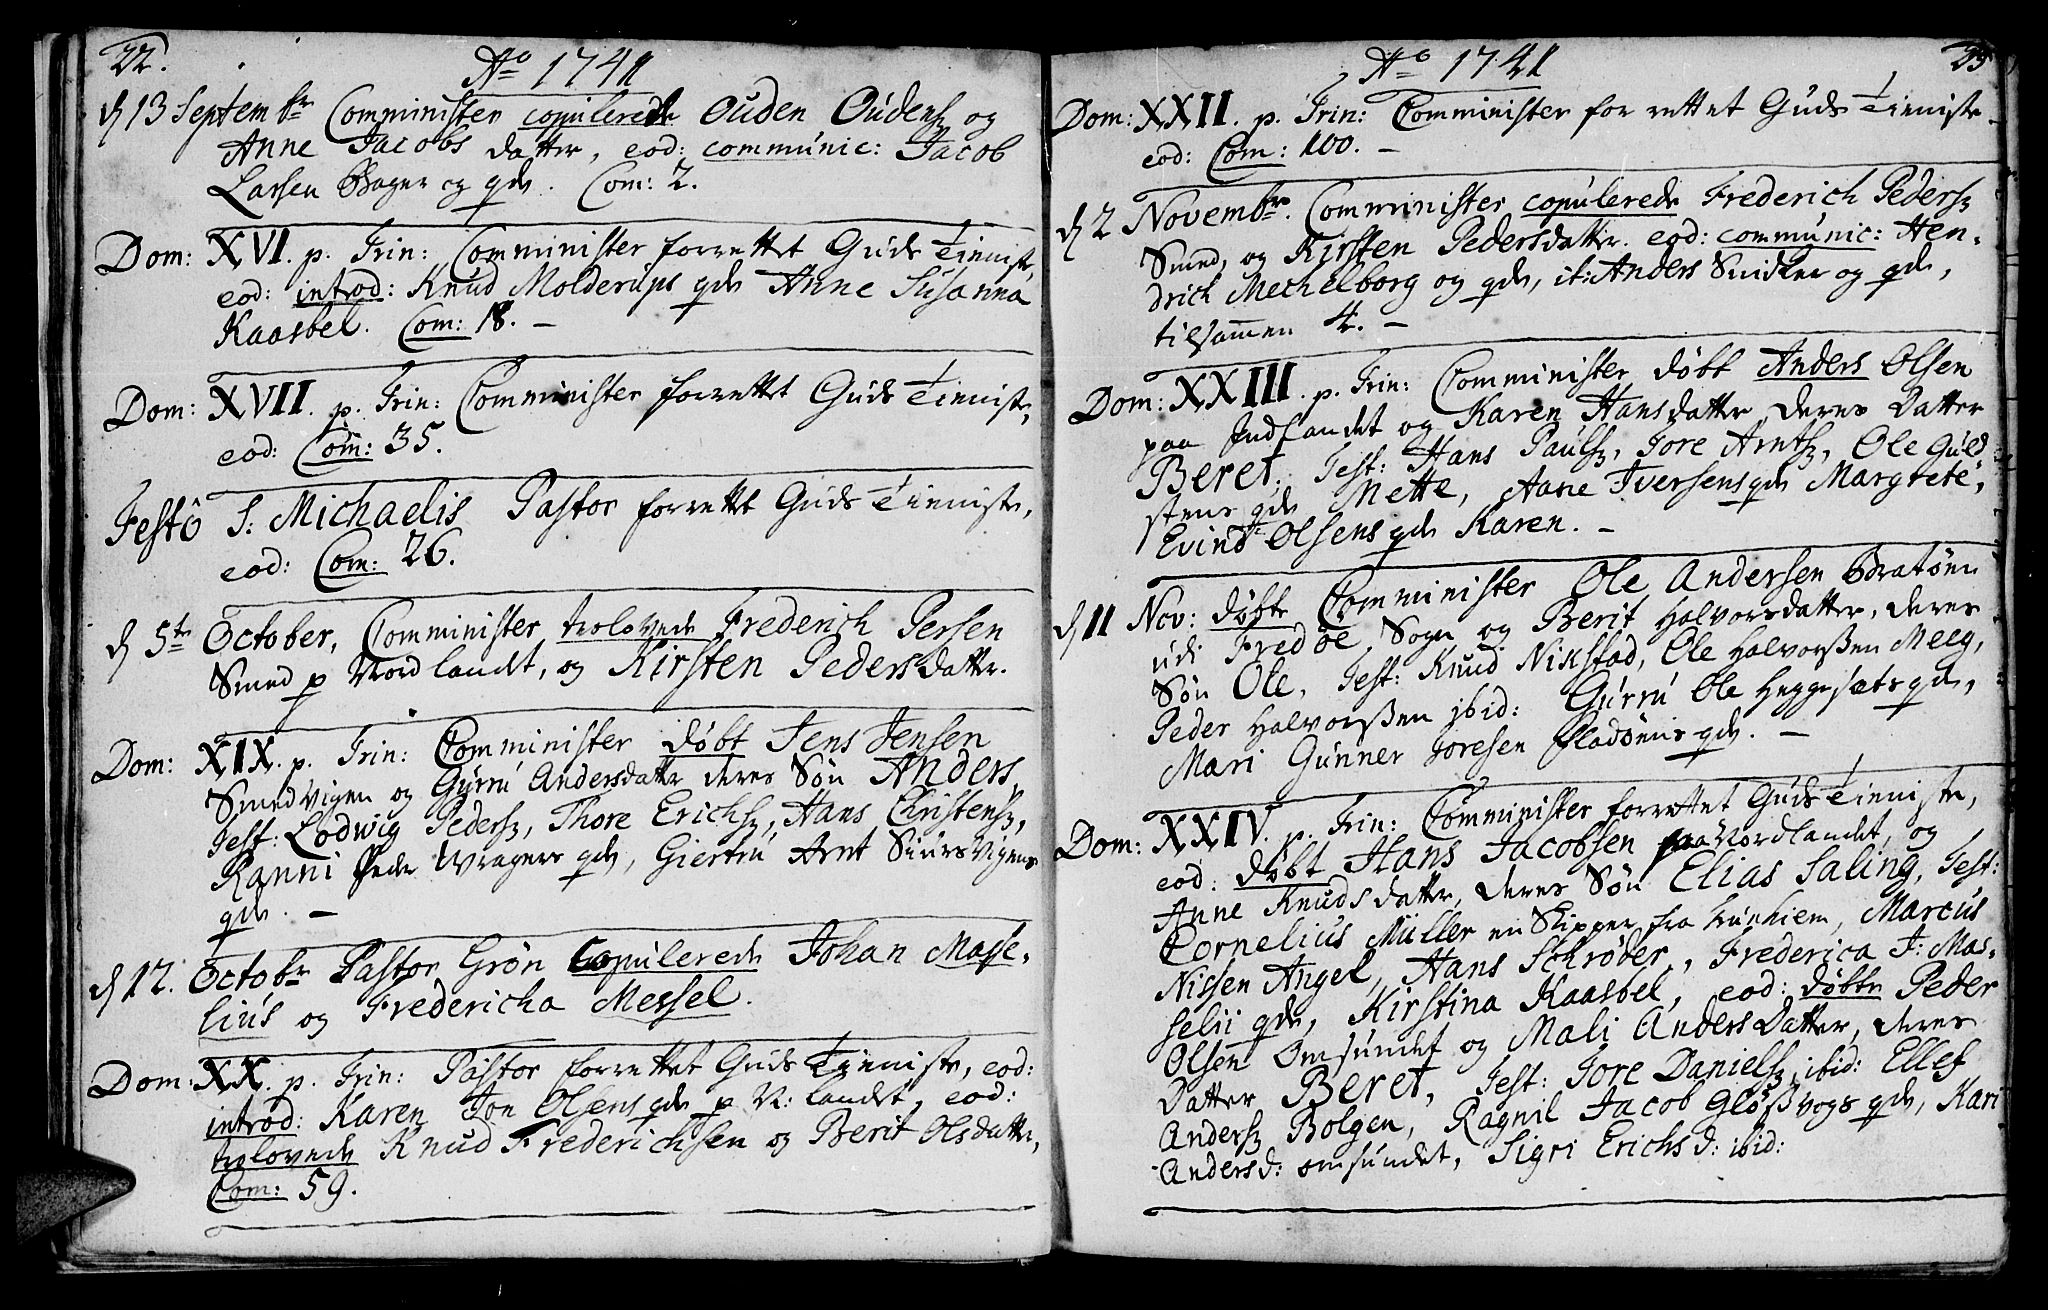 22.
Aº 1741
d 13 Septembr Comminister copulerede Ouden Oudens og
Anne Jacobs datter, eod: communic: Jacob
Larsen Bager og qde. Com: 2.
Dom: XVI. p. Trin: Comminister forrettet Guds Tieniste,
eod: introd: Knud Molderups qde Anne Susanna
Kaasbel. Com: 18. –
Dom: XVII. p. Trin: Comminister forrettet Guds Tieniste,
eod: Com: 35.
Festo S. Michaelis Pastor forrettet Guds Tieniste,
eod: Com: 26.
d 5te October, Comminister trolovede Frederich Persen
Smed p Nordlandet, og Kirsten Pedersdatter.
Dom: XIX. p. Trin: Comminister døbt Jens Jensen
Smedvigen og Gurru Andersdattr deres Søn Anders,
Test: Lodwig Peders, Thore Erichs, Hans Christens,
Ranni Peder Wragers qde, Giertru Arnt Siursvigens
qde. –
d 12. Octobr Pastor Grøn Copulerede Johan Masse-
lius og Fredericha Messel.
Dom: XX. p. Trin: Pastor forrettet Guds Tieniste, eod:
introd: Karen Jon Olsens qde p N: landet, eod:
trolovede Knud Frederichsen og Berit Olsdattr,
Com: 59.
23
Aº 1741
Dom: XXII. p. Trin: Comminister forrettet Guds Tieniste.
eod: Com: 100. –
d 2 Novembr. Comminister copulerede Frederich Peders
Smed, og Kirsten Pedersdatter. eod: communic: Hen-
drich Mechelborg og qde, it: Anders Snidker og qde,
tilsammen 4. –
Dom: XXIII. p. Trin: Comminister døbt Anders Olsen
paa Indlandet og Karen Hansdatter, deres Datter
Beret. Test: Hans Pauls, Tore Arnts, Ole Guld-
stens qde Mette, Aane Iversens qde Margrete,
Evind Olsens qde Karen. –
d 11 Nov: døbte Comminister Ole Andersen Bratøen
udi Fredøe Sogn og Berit Halvorsdatter, deres
Søn Ole, Test: Knud Nikstad, Ole Halvorssen Meeg,
Peder Halvorssen ibid: Gurru Ole Heggesets qde,
Mari Gunner Toresen Fladøens qde. –
Dom: XXIV. p. Trin: Comminister forrettet Guds Tieniste,
eod: døbt Hans Jacobsen paa Nordlandet, og
Anne Knudsdatter, deres Søn Elias Saling, Test:
Cornelius Müller en Skipper fra Trunhiem, Marcus
Nissen Angel, Hans Schrøder, Frederica J: Mas-
selii qde, Kirstina Kaasbel, eod: døbte Peder
Olsen Omsundet og Mali AndersDatter, deres
Datter Beret, Test: Tore Daniels, ibid: Ellef
Anders Bolgen, Ragnil Jacob Gløssvogs qde, Kari
Andersd: omsundet, Sigri Erichsd: ibid: